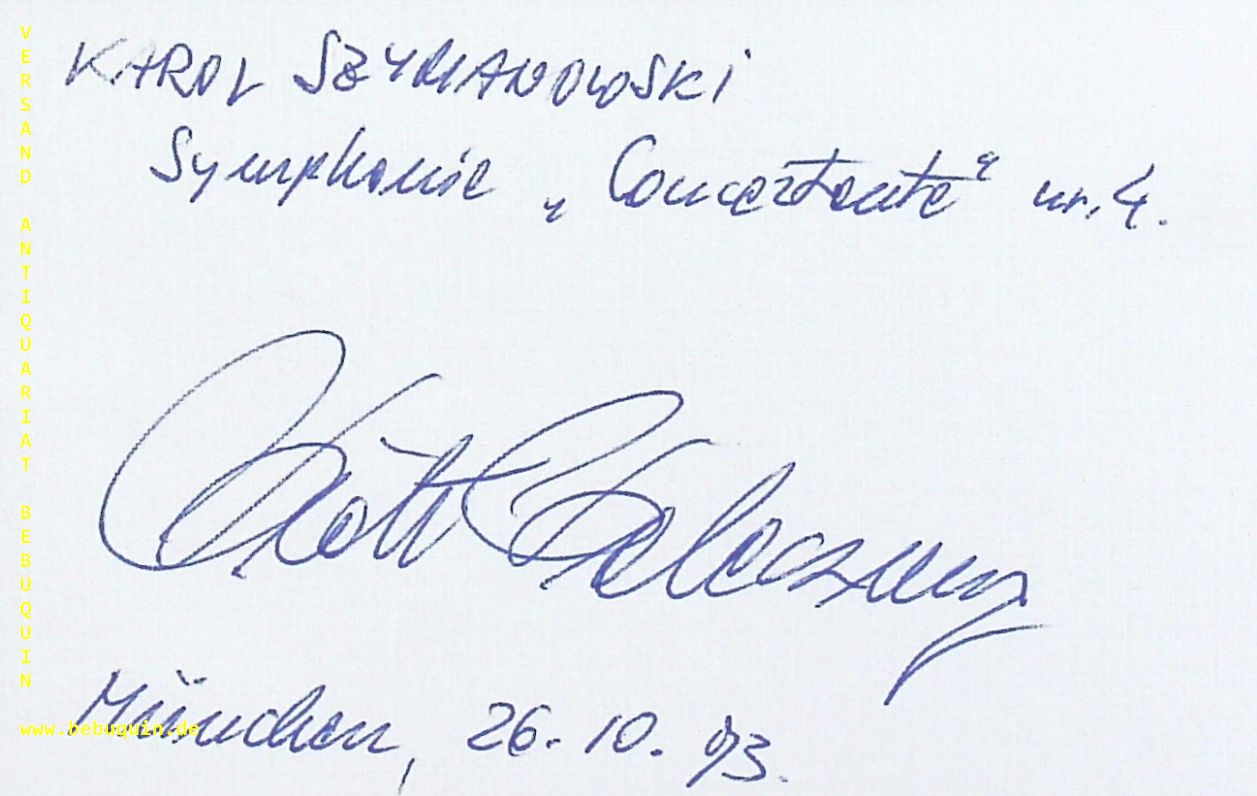 KAROL SZYMANOWSKI
Symphonie „Concertante“ nr. 4.
Piotr Paleczny
München, 26. 10. 93.
VERSAND ANTIQUARIAT BEBUQUIN
www.bebuquin.de